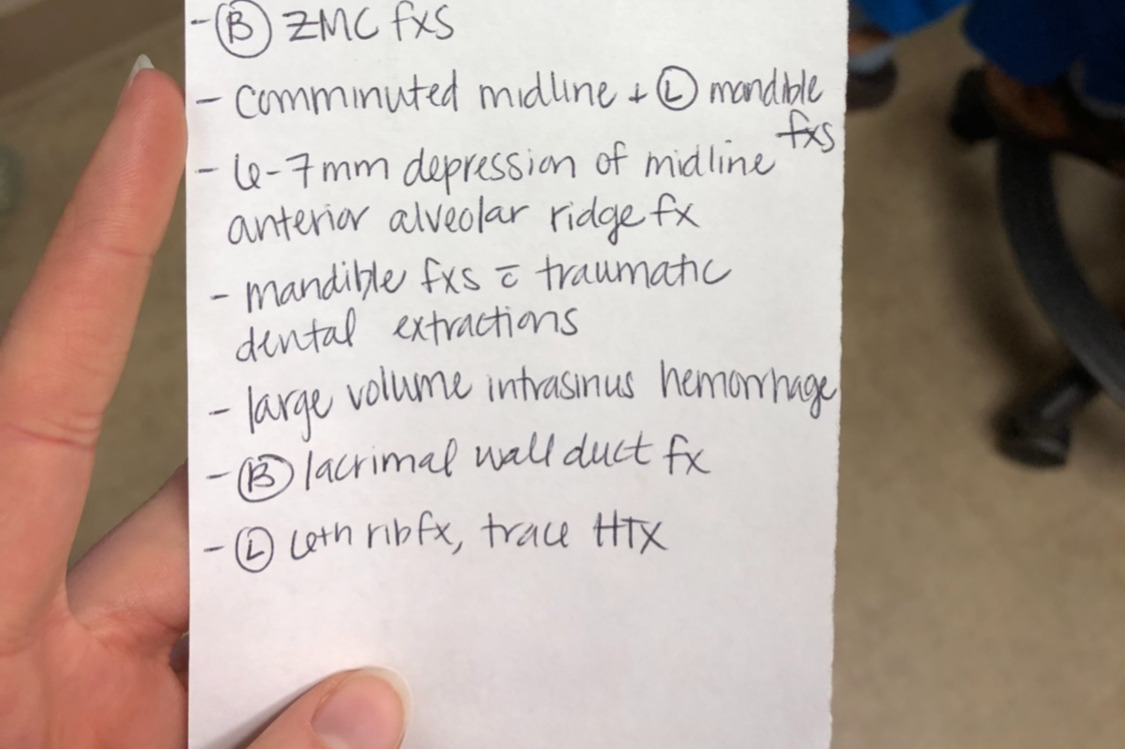 - Ⓑ ZMC fxs
- comminuted midline + Ⓛ mandible
fxs
- 6-7mm depression of midline
anterior alveolar ridge fx
- mandible fxs c̄ traumatic
dental extractions
- large volume intrasinus hemorrhage
- Ⓑ lacrimal wall duct fx
- Ⓛ 6th rib fx, trace HTX